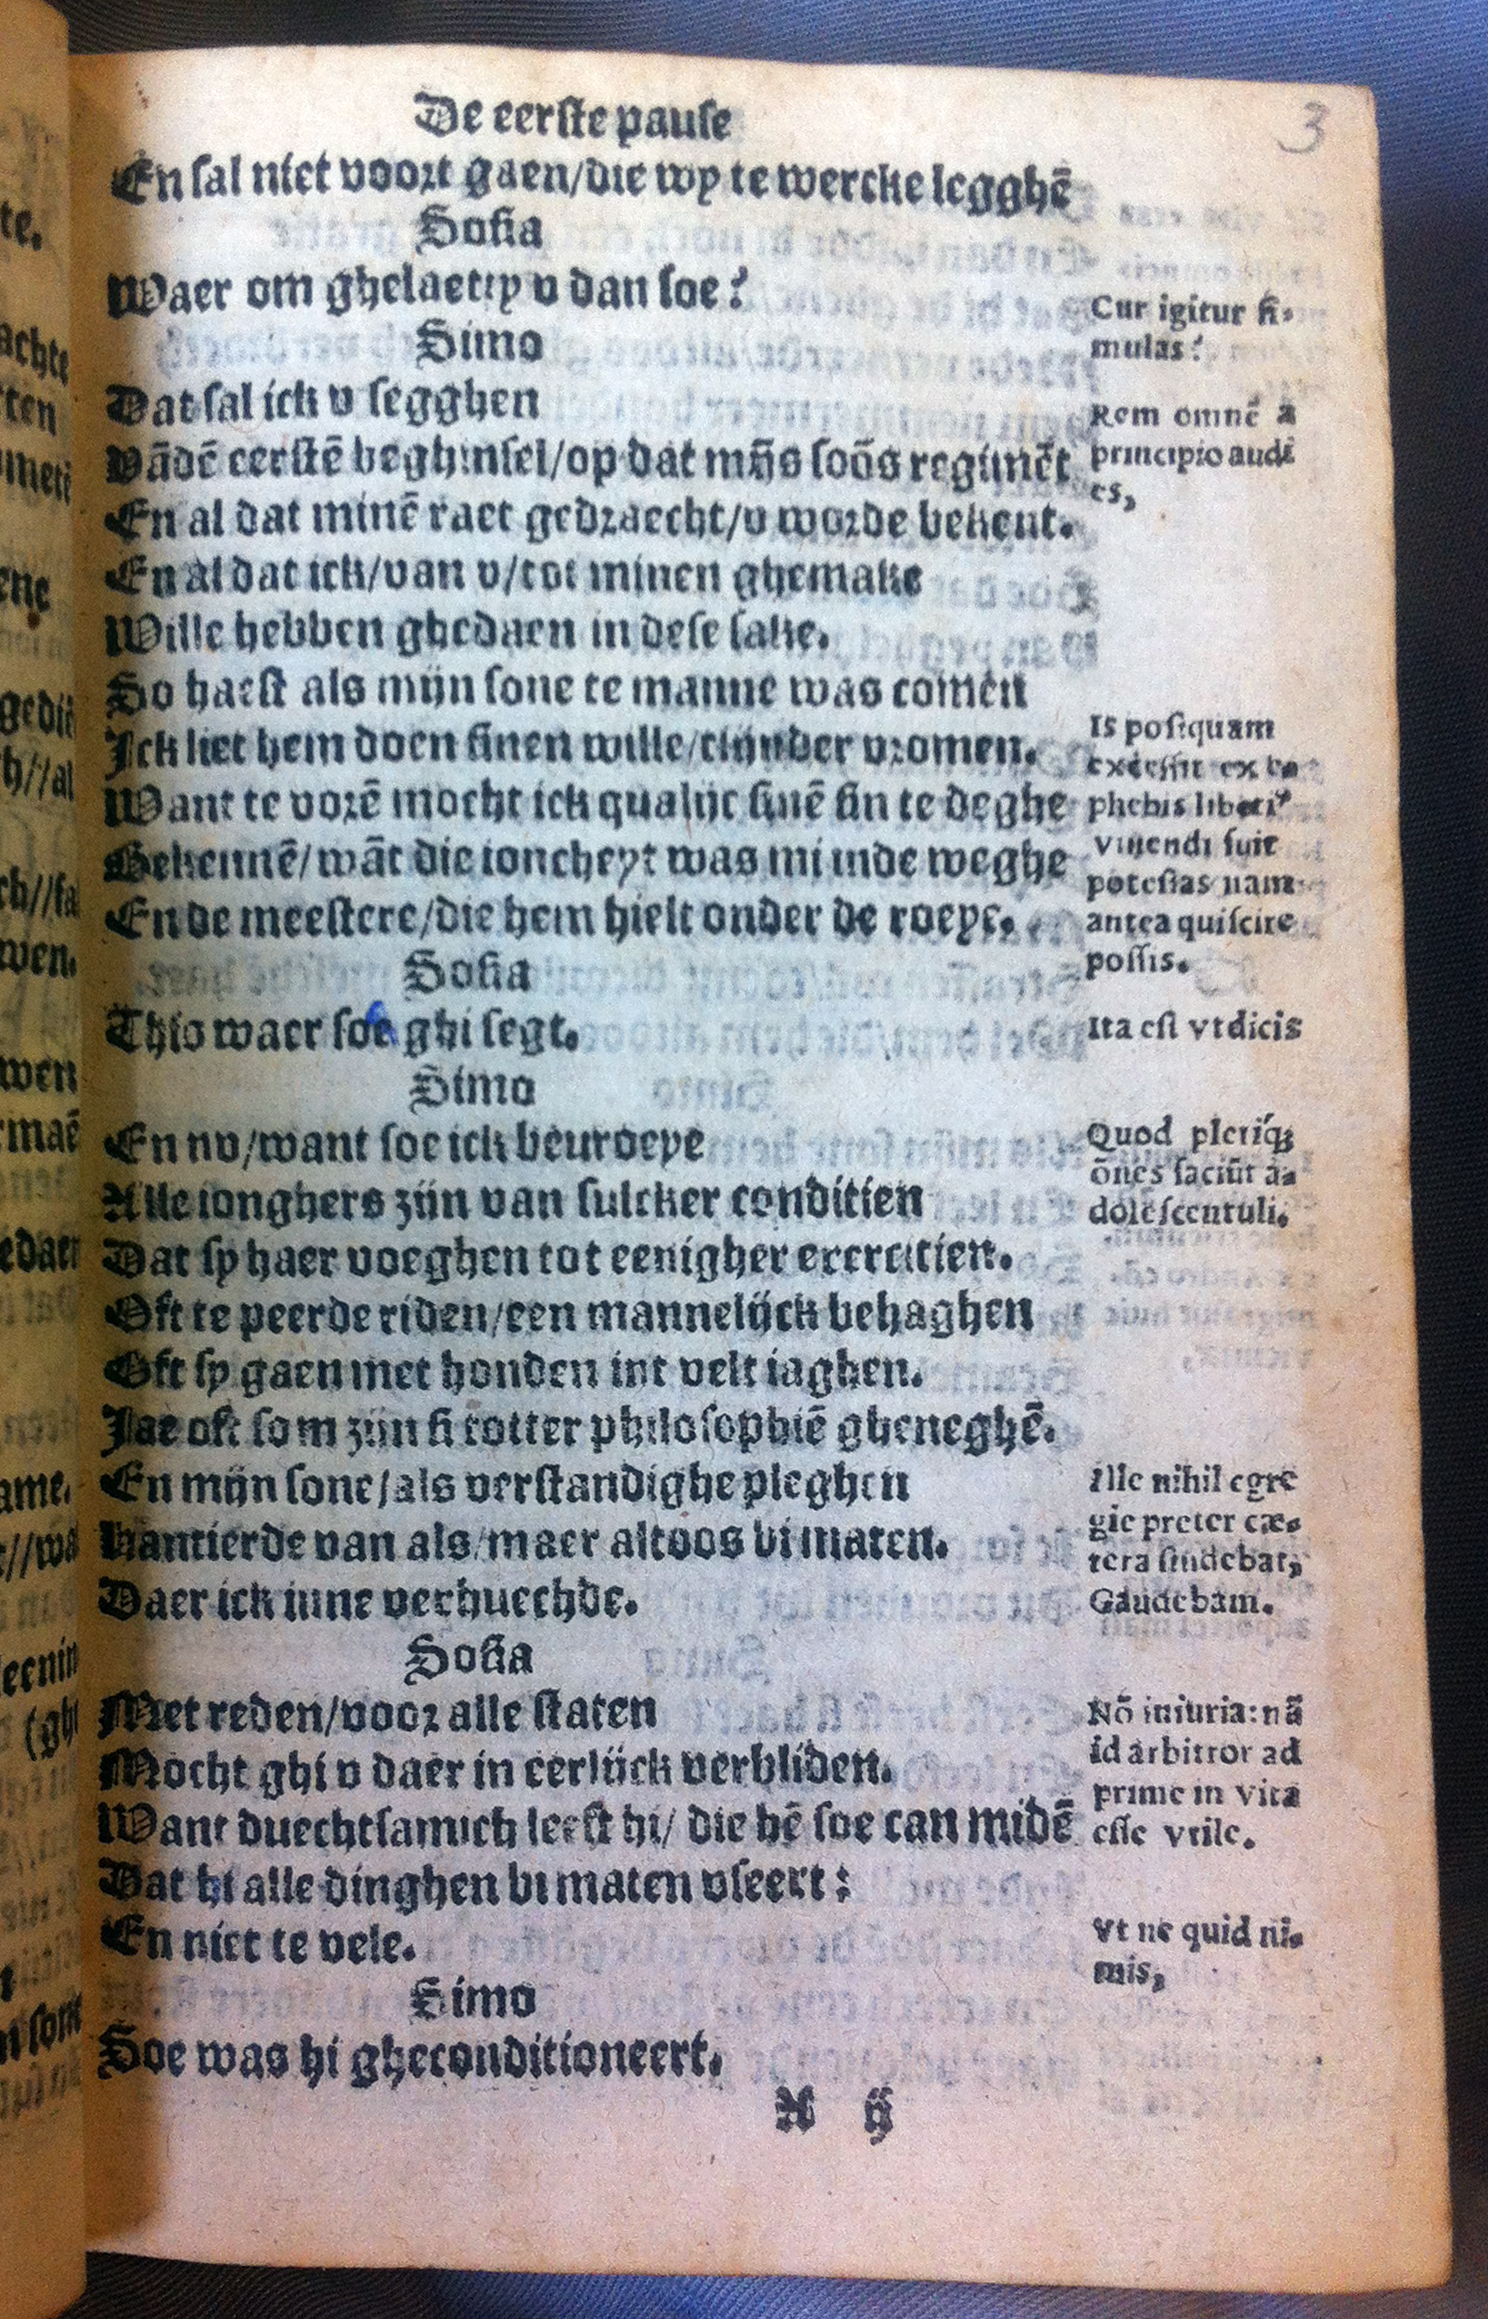 3
De eerste pause
En sal niet voort gaen/die wy te wercke legghē
Sosia
Waer om ghelaetty v dan soe?
Cur igitur si-
mulas?
Simo
Dat sal ick v segghen
Rem omnē a
principio audi
es,
Vādē eerstē beghinsel/op dat mijs soōs regimēt
En al dat minē raet gedraecht/v worde bekent.
En al dat ick/van v/tot minen ghemake
Wille hebben ghedaen in dese sake.
So haest als mijn sone te manne was comēn
Is postquam
excessit ex e-
phebis liberi'
viuendi fuit
potestas nam
antea qui scire
possis.
Ick liet hem doen sinen wille/tsijnder vromen.
Want te vorē mocht ick qualijc sinē sin te deghe
Bekennē/wāt die ioncheyt was mi inde weghe
En de meestere/die hem hielt onder de roeye.
Sosia
This waer soe ghi segt.
Ita est vt dicis
Simo
En nv/want soe ick bevroeye
Quod pleriq;
ōnes faciūt a-
dolescentuli.
Alle ionghers zijn van sulcker conditien
Dat sy haer voeghen tot eenigher exercitien.
Oft te peerde riden/een mannelijck behaghen
Oft sy gaen met honden int velt iaghen.
Jae oft som zijn si totter philosophiē gheneghē.
En mijn sone/als verstandighe pleghen
Ille nihil egre
gie preter cæ-
tera studebat,
Gaudebam.
Hantierde van als/maer altoos bi maten.
Daer ick inne verhuechde.
Sosia
Met reden/voor alle staten
Nō iniuria: nā
id arbitror ad
prime in vita
esse vtile.
Mocht ghi v daer in eerlijck verbliden.
Want duechtsamich leeft hi/ die hē soe can midē
Dat hi alle dinghen bi maten vseert:
En niet te vele.
Vt ne quid ni-
mis,
Simo
Soe was hi gheconditioneert.
A ij